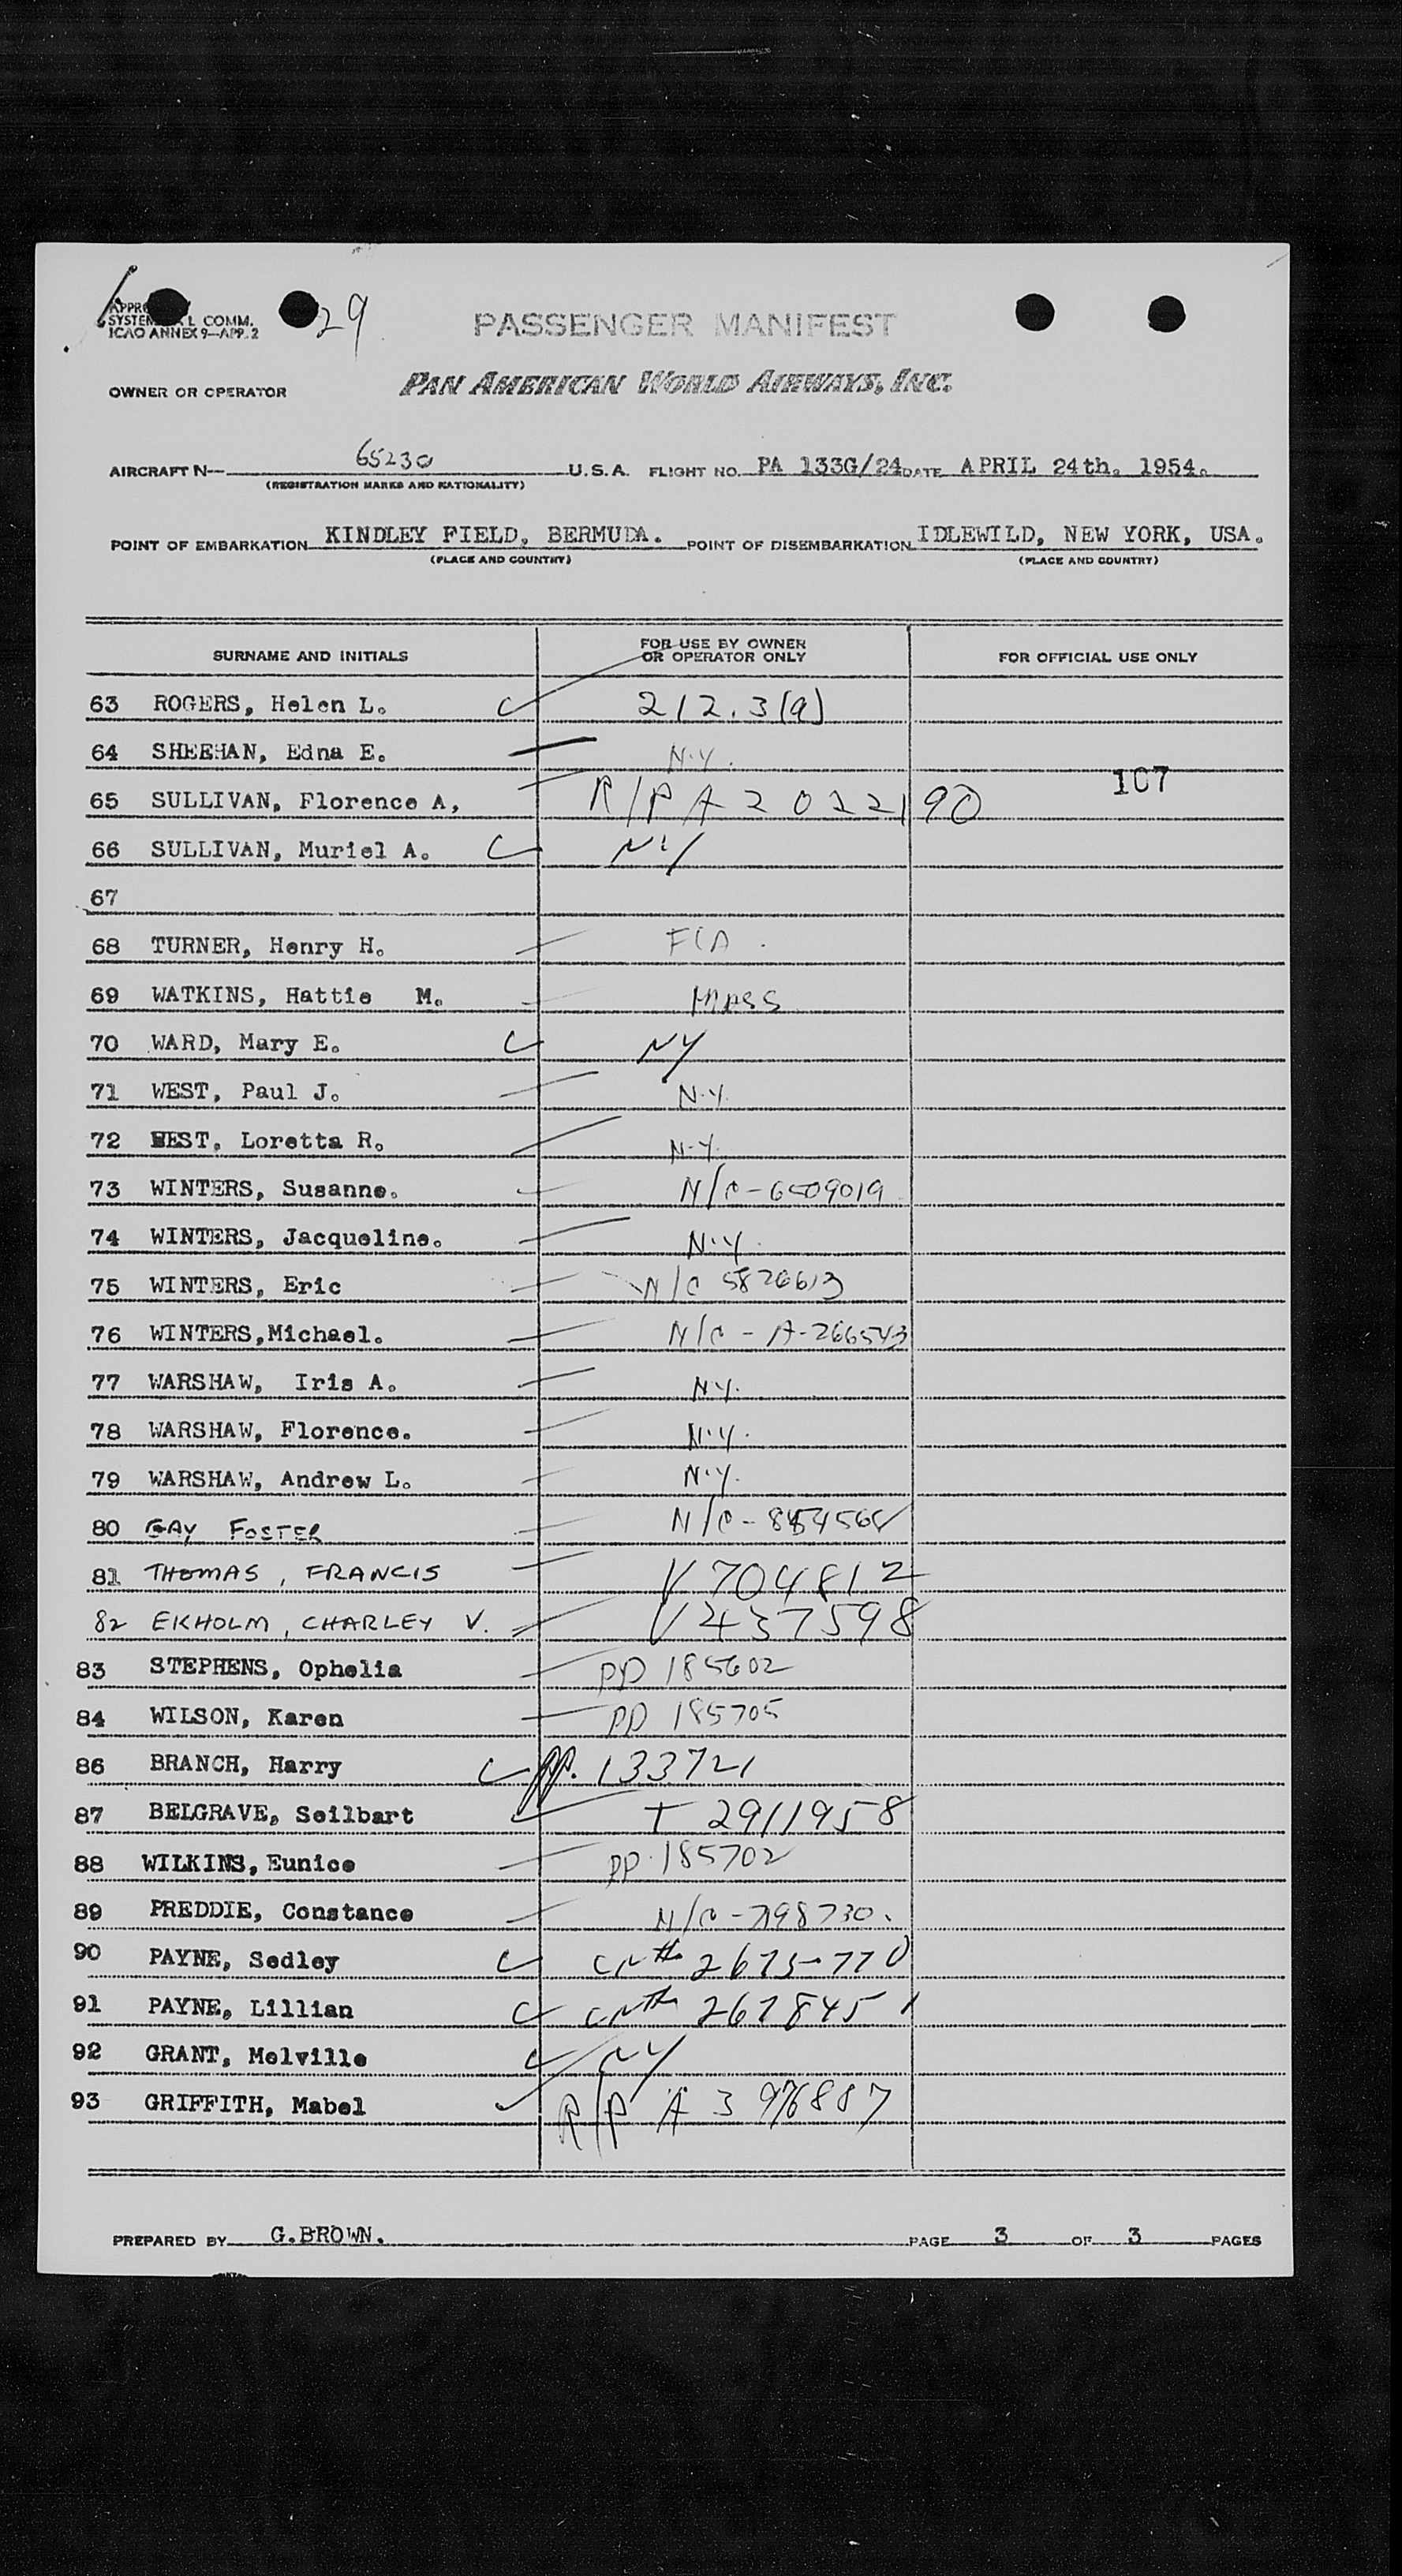 29
SYSTEM L COMM.
ICAO ANNEX 9—APP. 2
PASSENGER MANIFEST
OWNER OR OPERATOR PAN AMERICAN WORLD AIRWAYS, INC.
AIRCRAFT N— 65230 U.S.A. FLIGHT NO. PA 133G/24 DATE APRIL 24th. 1954.
(REGISTRATION MARKS AND NATIONALITY)
POINT OF EMBARKATION KINDLEY FIELD, BERMUDA. POINT OF DISEMBARKATION IDLEWILD, NEW YORK, USA.
(PLACE AND COUNTRY) (PLACE AND COUNTRY)
SURNAME AND INITIALS FOR USE BY OWNER OR OPERATOR ONLY FOR OFFICIAL USE ONLY
63 ROGERS, Helen L. 212.3(a)
64 SHEEHAN, Edna E. N.Y.
107
65 SULLIVAN, Florence A, R/P A2022190
66 SULLIVAN, Muriel A. NY
67
68 TURNER, Henry H.
69 WATKINS, Hattie M. Mass
70 WARD, Mary E. NY
71 WEST, Paul J. N.Y.
72 WEST, Loretta R. N.Y.
73 WINTERS, Susanne. N/C-6509019
74 WINTERS, Jacqueline. N.Y.
75 WINTERS, Eric N/C 5826613
76 WINTERS,Michael. N/C - A-266543
77 WARSHAW, Iris A. N.Y.
78 WARSHAW, Florence. N.Y.
79 WARSHAW, Andrew L. N.Y.
80 GAY FOSTER N/C-
81 THOMAS, FRANCIS V 704812
82 EKHOLM, CHARLEY V. V 437598
83 STEPHENS, Ophelia PP 185602
84 WILSON, Karen PP 185705
86 BRANCH, Harry PP. 133721
87 BELGRAVE, Seilbart T 2911958
88 WILKINS, Eunice PP. 185702
89 PREDDIE, Constance N/C-7198730.
90 PAYNE, Sedley 2675770
91 PAYNE, Lillian 2678451
92 GRANT, Melville NY
93 GRIFFITH, Mabel R/P A3 976887
PREPARED BY G.BROWN. PAGE 3 OF 3 PAGES